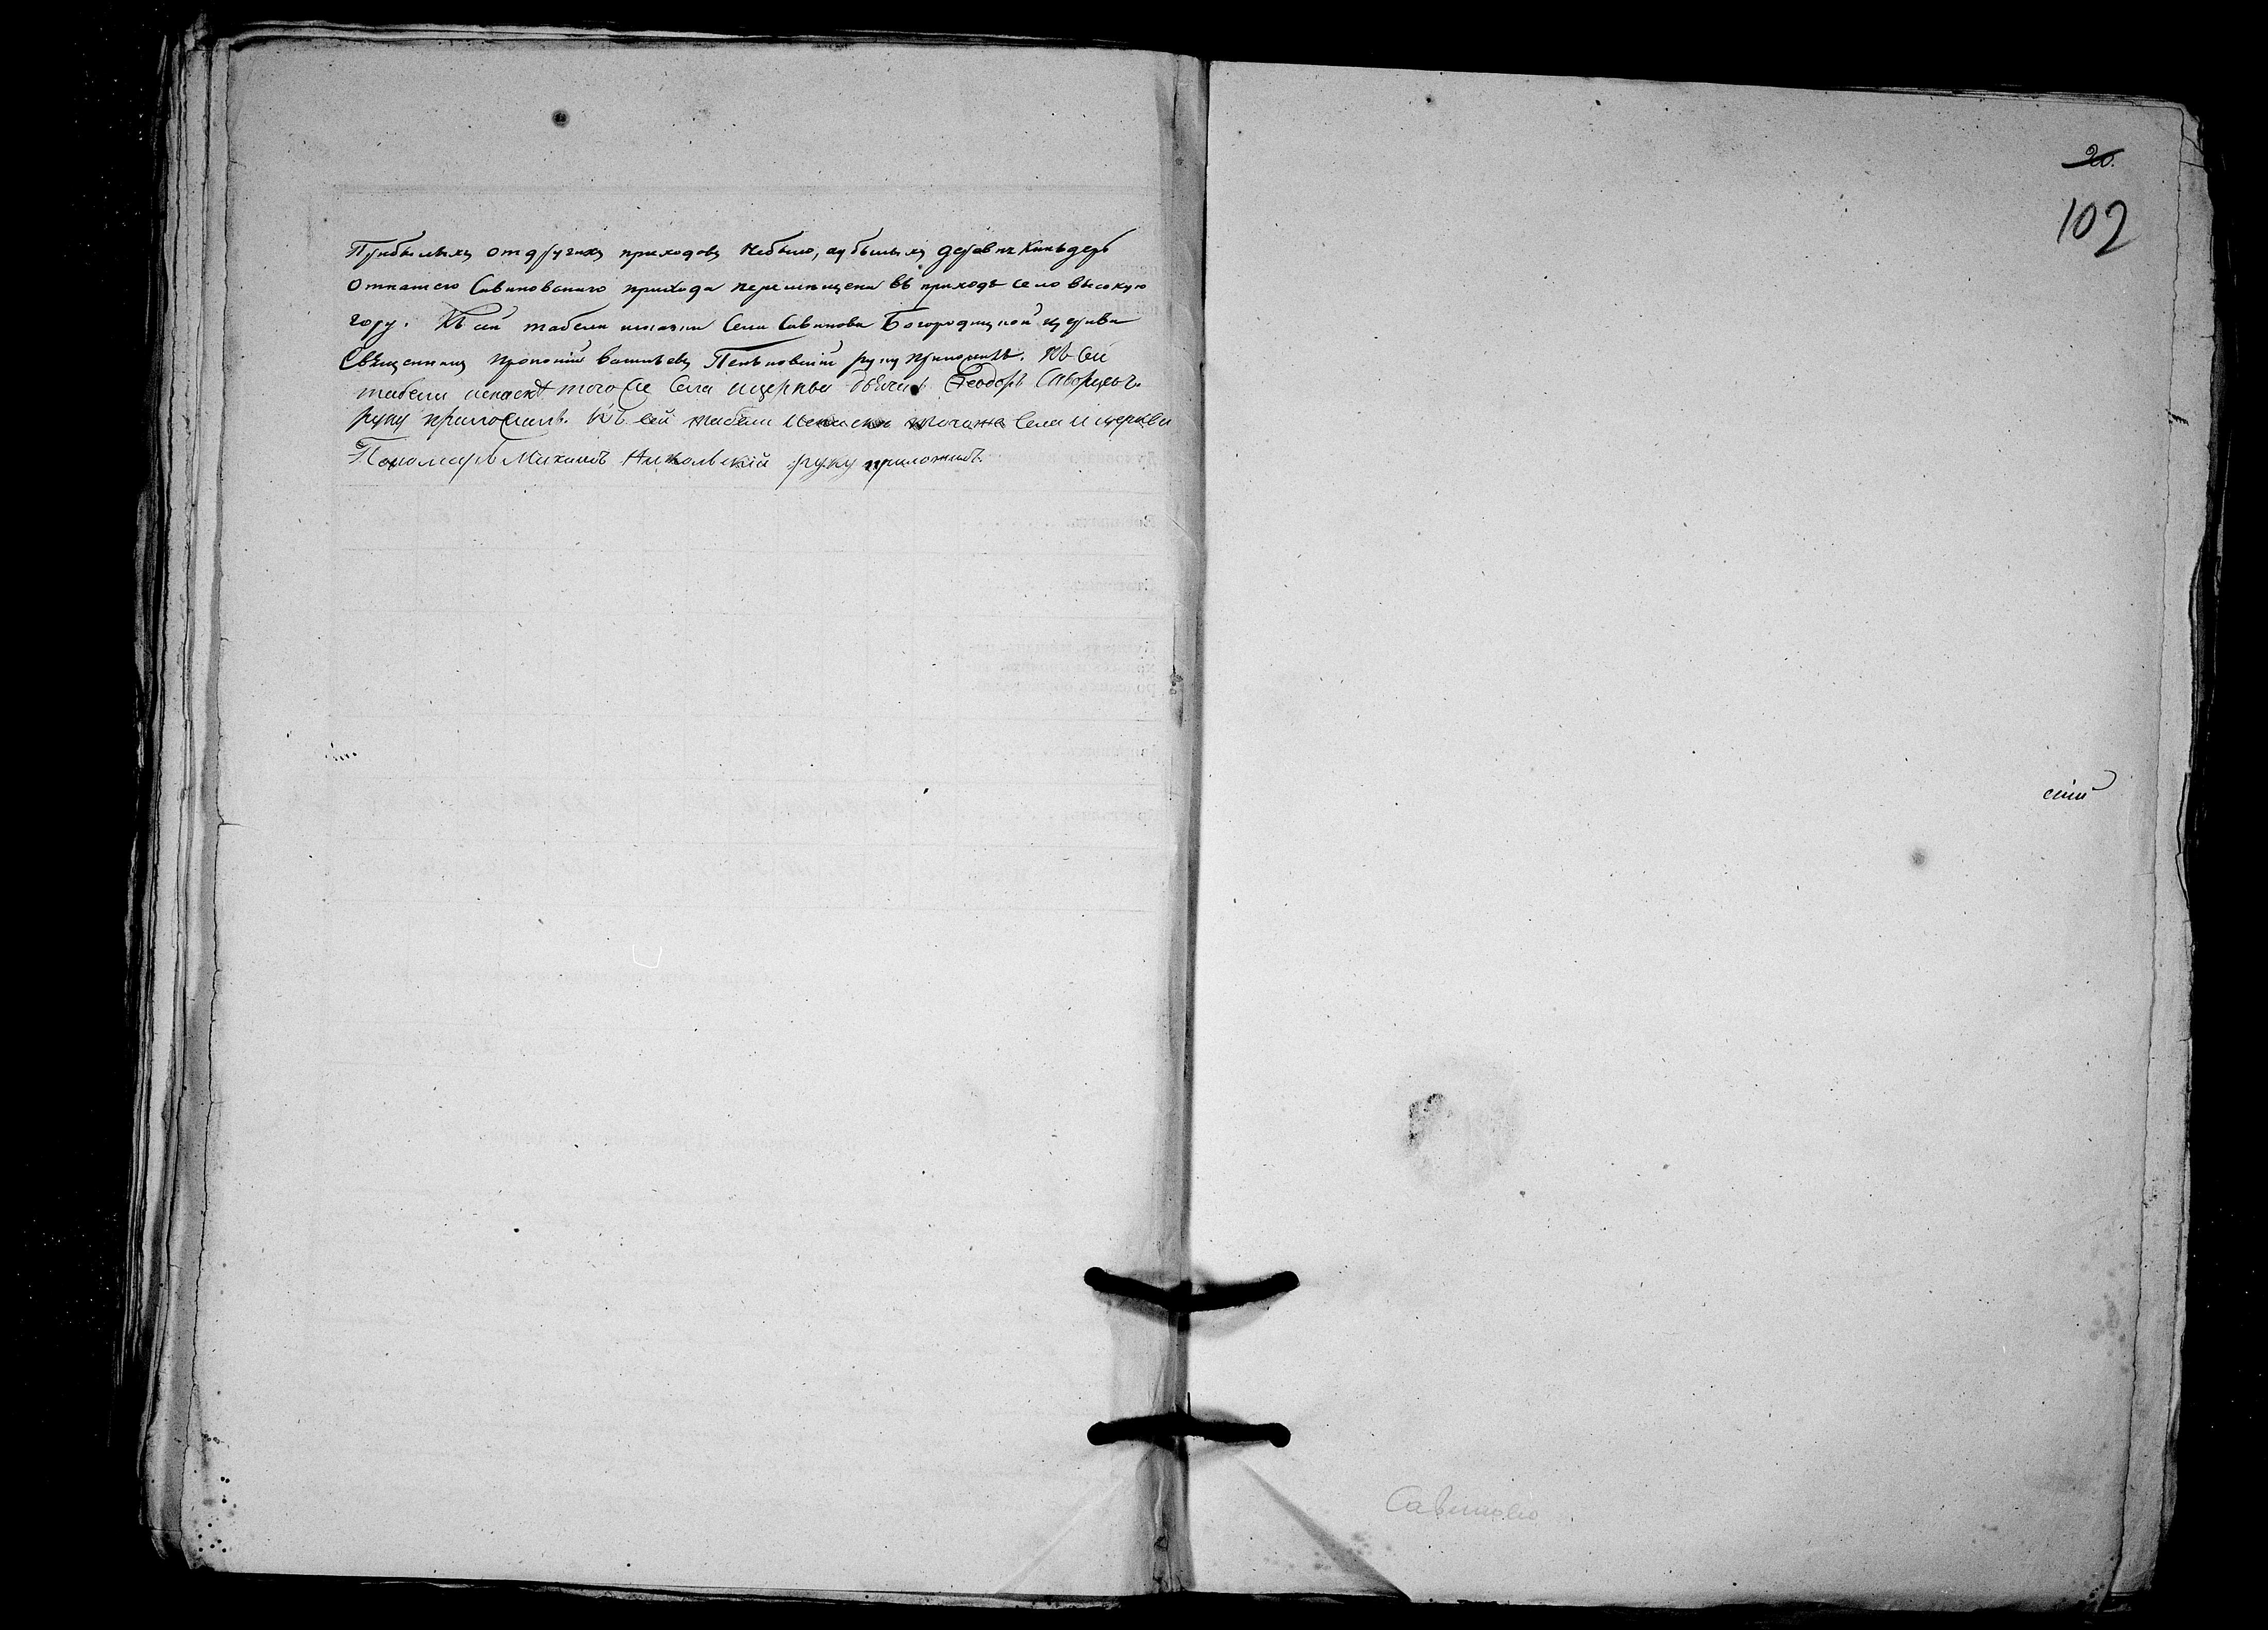 Прибылыхъ отдругихъ приходовъ небыло, аубылыхъ деревня Киньдерь
отнашего Савиновскаго прихода перемещена въ приходъ село высокую
гору. Къ сей табели исповни Села Савинова Богородицкой церкви
Священникъ Прокопий Васильевъ руку приложилъ. Къ сей
табели исповни того же Села и церкви дьячекъ Феодоръ
руку приложилъ. Къ сей табели тогоже Села и церкви
Пономарь Михаилъ Никольский руку приложилъ.
20.
102
сий
Савиново